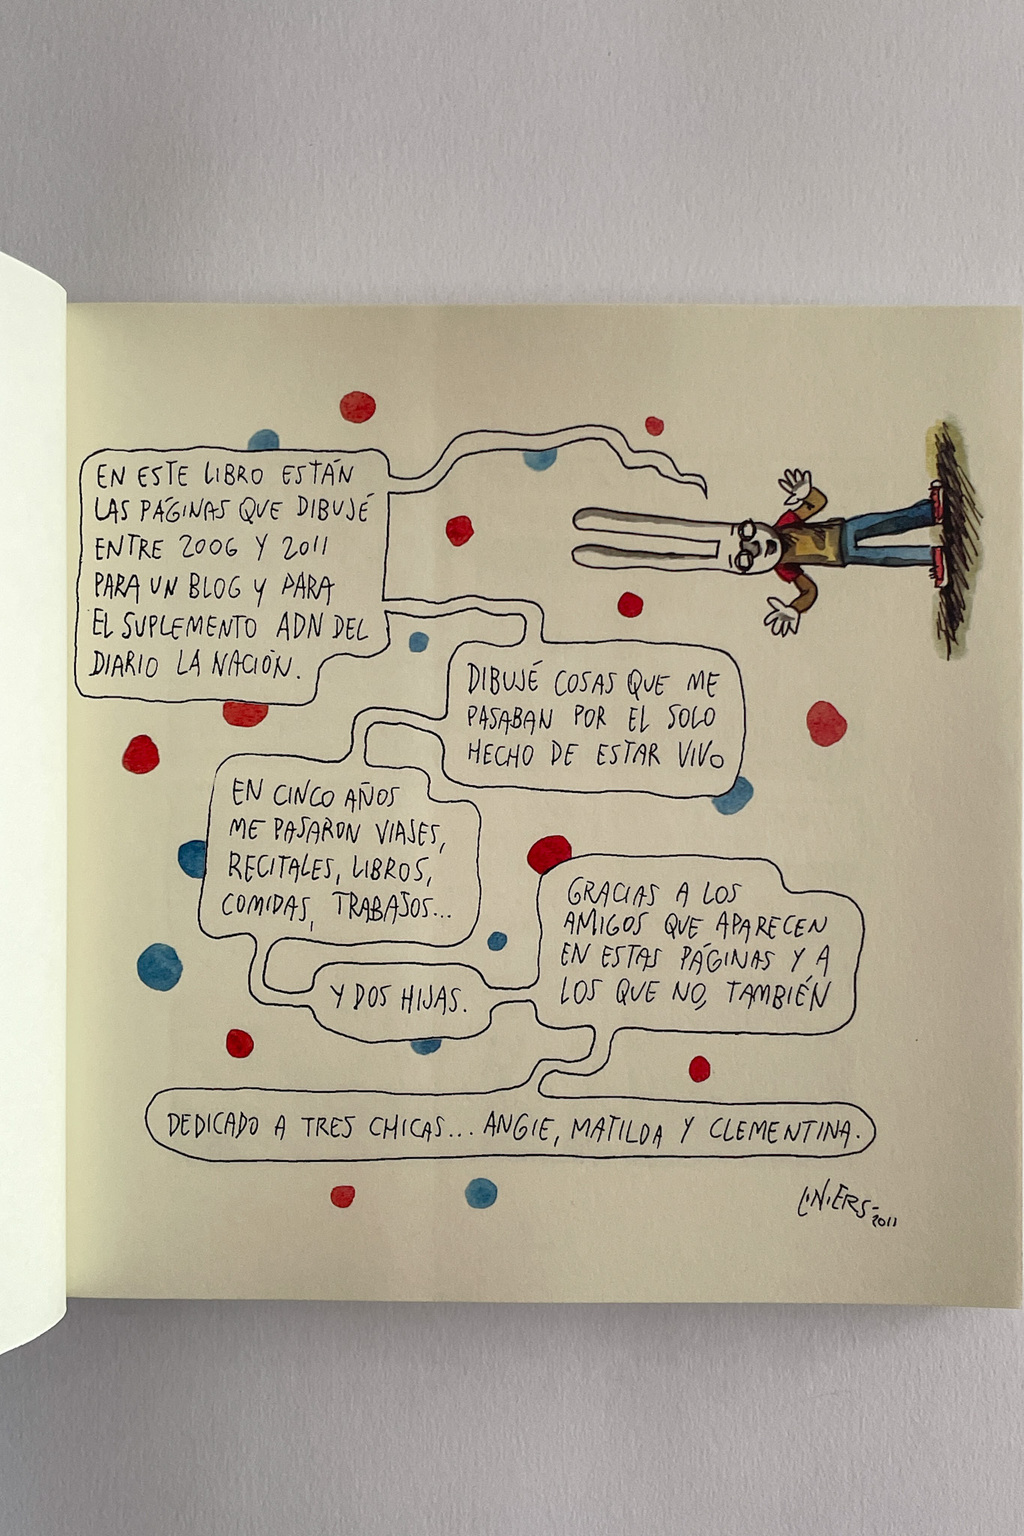 EN ESTE LIBRO ESTÁN
LAS PÁGINAS QUE DIBUJÉ
ENTRE 2006 Y 2011
PARA UN BLOG Y PARA
EL SUPLEMENTO ADN DEL
DIARIO LA NACIÓN.
DIBUJÉ COSAS QUE ME
PASABAN POR EL SOLO
HECHO DE ESTAR VIVO
EN CINCO AÑOS
ME PASARON VIAJES,
RECITALES, LIBROS,
COMIDAS, TRABAJOS...
Y DOS HIJAS.
GRACIAS A LOS
AMIGOS QUE APARECEN
EN ESTAS PÁGINAS Y A
LOS QUE NO, TAMBIÉN
DEDICADO A TRES CHICAS... ANGIE, MATILDA Y CLEMENTINA.
LINIERS-
2011